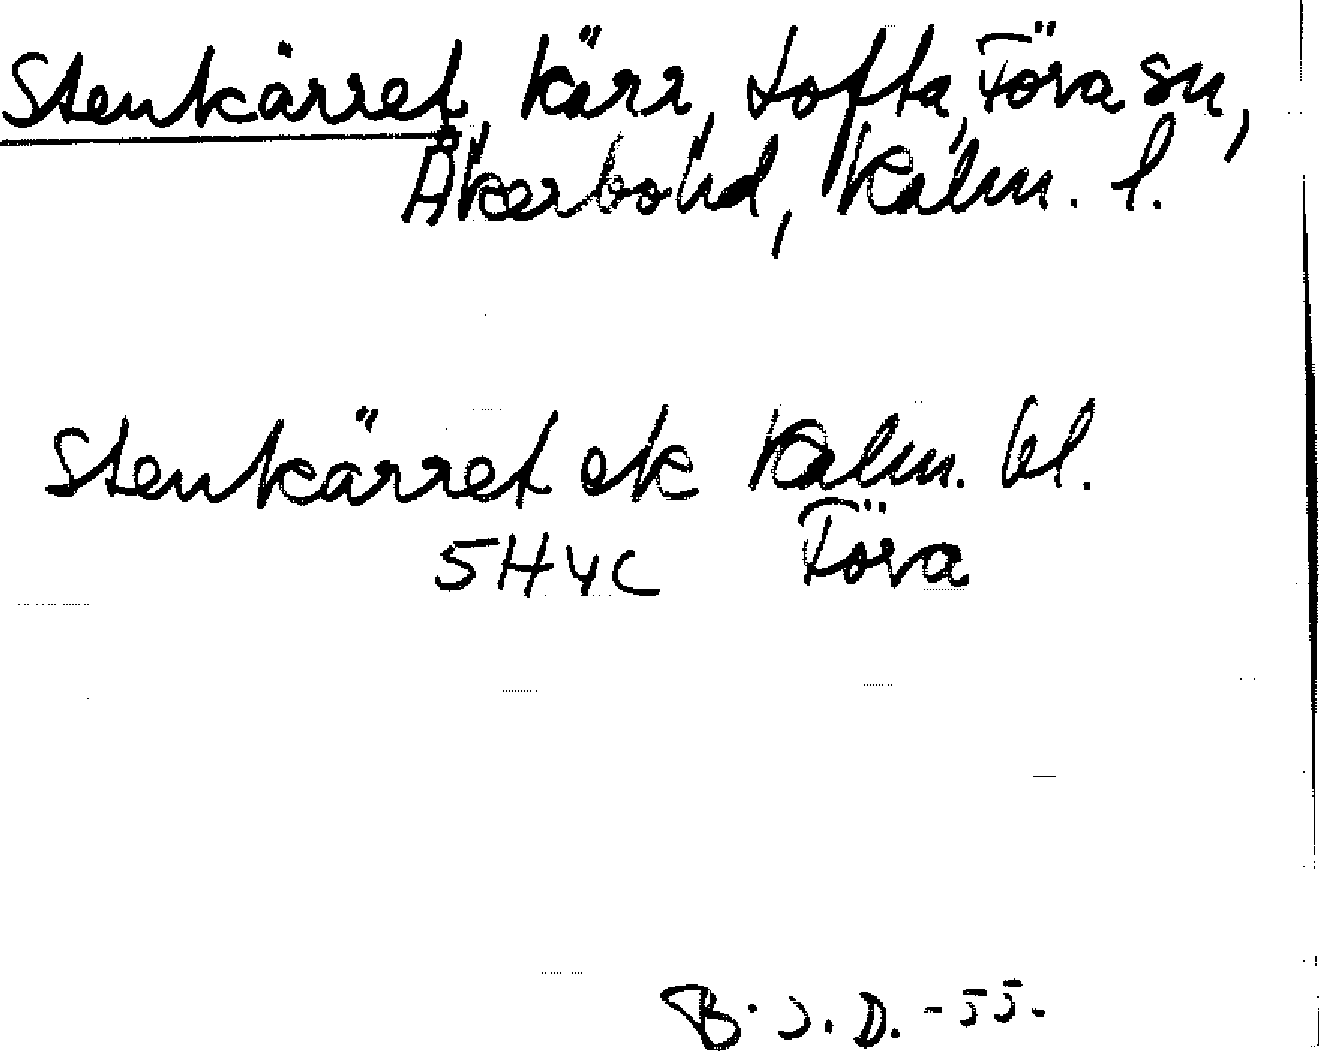 Stenkärret, kärr, Lofta, Föra sn,
Åkerbo hd, Kalm. l.
Stenkärret ek Kalm. bl.
5H4c Föra
B.J.D. -55.